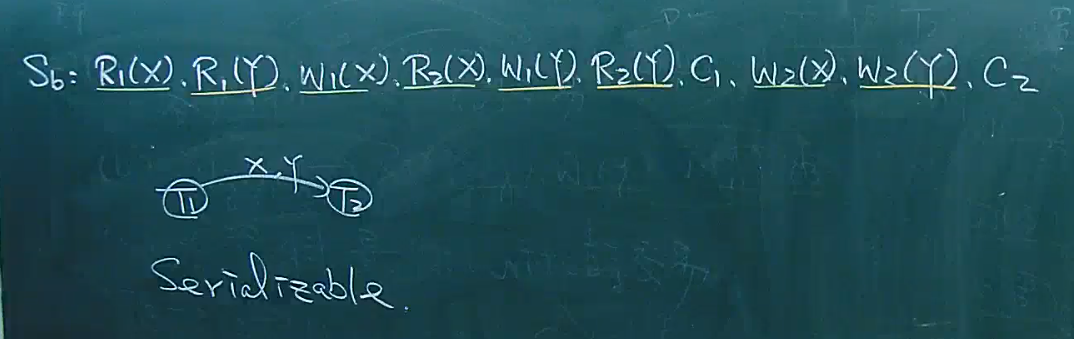 S6: R1(X), R1(Y), W1(X), R2(X), W1(Y), R2(Y), C1, W2(X), W2(Y), C2
X,Y
T1 T2
Serializable.